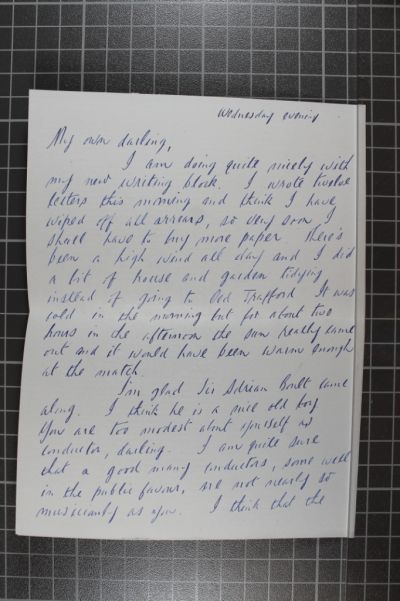 Wednesday evening
My own darling,
I am doing quite nicely with
my new writing block. I wrote twelve
letters this morning and think I have
wiped off all arrears, so very soon I
shall have to buy more paper. There's
been a high wind all day and I did
a bit of house and garden tidying
instead of going to Old Trafford. It was
cold in the morning but for about two
hours in the afternoon the sun really came
out and it would have been warm enough
at the match.
I'm glad Sir Adrian Boult came
along. I think he is a nice old boy
You are too modest about yourself as
conductor, darling. I am quite sure
that a good many conductors, some well
in the public favour, are not nearly so
musicianly as you. I think that the